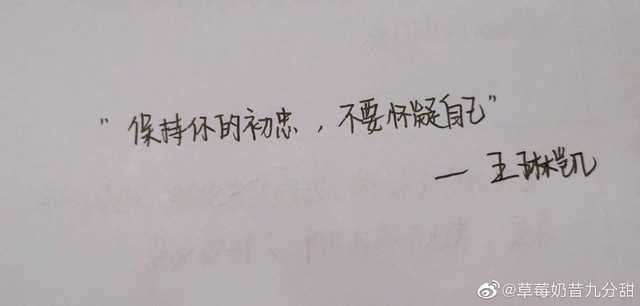 "保持你的初忠，不要怀疑自己"
— 王琳凯
@草莓奶昔九分甜